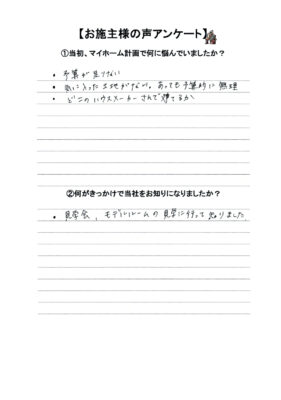 【お施主様の声アンケート】
①当初、マイホーム計画で何に悩んでいましたか？
・予算が足りない
・気に入った土地がない。あっても予算的に無理
・どこのハウスメーカーさんで建てるか
②何がきっかけで当社をお知りになりましたか？
・見学会、モデルルームの見学に行って知りました